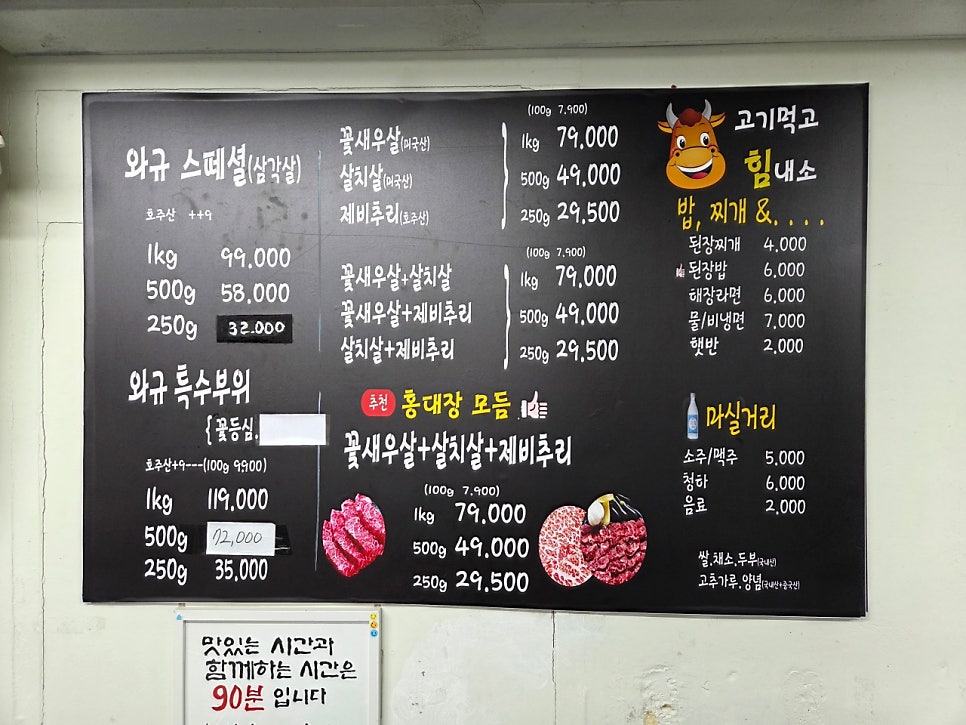 와규 스페셜(삼각살)
호주산 ++9
1kg 99.000
500g 58.000
250g 32.000
와규 특수부위
{꽃등심.
호주산+9---(100g 9.900)
1kg 119,000
500g 72,000
250g 35,000
(100g 7.900)
꽃새우살(미국산) 1kg 79.000
살치살(미국산) 500g 49.000
제비추리(호주산) 250g 29.500
(100g 7.900)
꽃새우살+살치살 1kg 79.000
꽃새우살+제비추리 500g 49.000
살치살+제비추리 250g 29.500
추천 홍대장 모듬
꽃새우살+살치살+제비추리
(100g 7.900)
1kg 79.000
500g 49.000
250g 29.500
고기먹고
힘내소
밥, 찌개 &. . . .
된장찌개 4.000
된장밥 6.000
해장라면 6.000
물/비냉면 7,000
햇반 2,000
마실거리
소주/맥주 5.000
청하 6,000
음료 2,000
쌀.채소.두부(국내산)
고추가루.양념(국내산+중국산)
맛있는 시간과
함께하는 시간은
90분 입니다